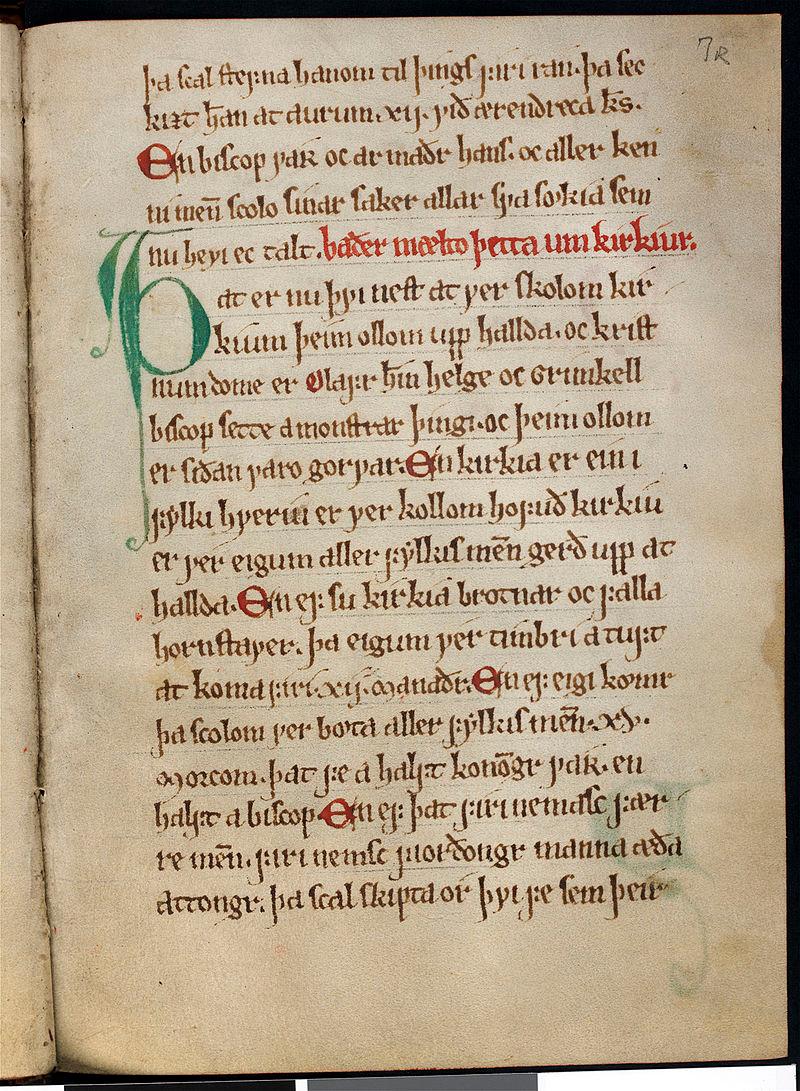 7R
þa scal stefna hanom til þings firi ran. þa sec
kizt han at aurum .xij. við ærendreca ks.
En biscop var oc ar madr hans. oc aller ken
ni men scolo sinar saker allar sva sokia sem
nu hevi ec talt. bader mælto þetta um kirkiur.
Þat er nu þvi nest at ver skolom kir
kium þeim ollom upp hallda. oc krist
num dome er Olafr hin helge oc Grimkell
biscop sette a monstrar þingi. oc þeim ollom
er sidan varo gorvar. En kirkia er ein i
fylki hveriu er ver kollom hofuð kirkiu
er ver eigum aller fylkis men gerð upp at
hallda. En ef su kirkia brotnar oc falla
hornstaver. þa eigum ver timbri a tuft
at koma firi .xij. manaðr. En ef eigi komr
þa scolom ver bota aller fylkis men .xv.
morcom. þat fe a halft konongr var. en
halft a biscop. En ef þat firi nemasc fær
re men. firi nemsc fiorðongr manna æða
attongr. þa scal skipta or þvi fe sem þeir